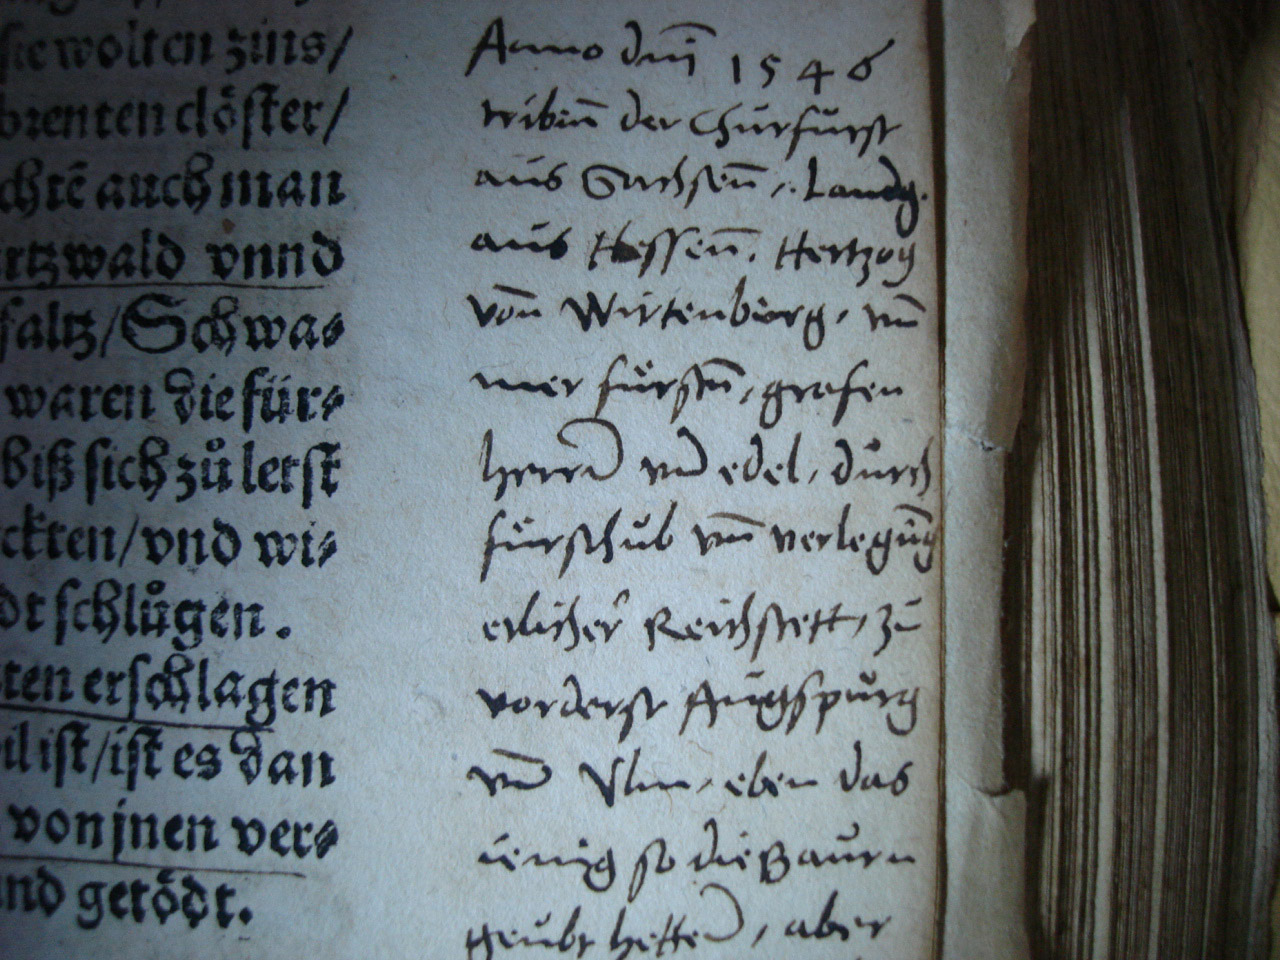 ste wolten zins/
brenten clöster/
chtē auch man
rtzwald vnnd
faltz/Schwa⸗
waren die für⸗
biß sich zů letst
ckten/vnd wi⸗
dt schlůgen.
ten erschlagen
il ist/ist es dan
von jnen ver⸗
nd getödt.
Anno dm̄j 1546
tribēn der Churfurst
aus Sachsen̄, Landg.
aus Hessen̄, Hertzog
von̄ Wirtenbūrg, vn̄
mer fürstn̄, grafen
herrn̄ vn̄ edel, durch
fürschub vn̄ verlegūg
etlicher Reichstett, zu
vorderst Augspurg
vn̄ Vlm, eben das
ienig so die Baurn
geubt hetten̄, aber